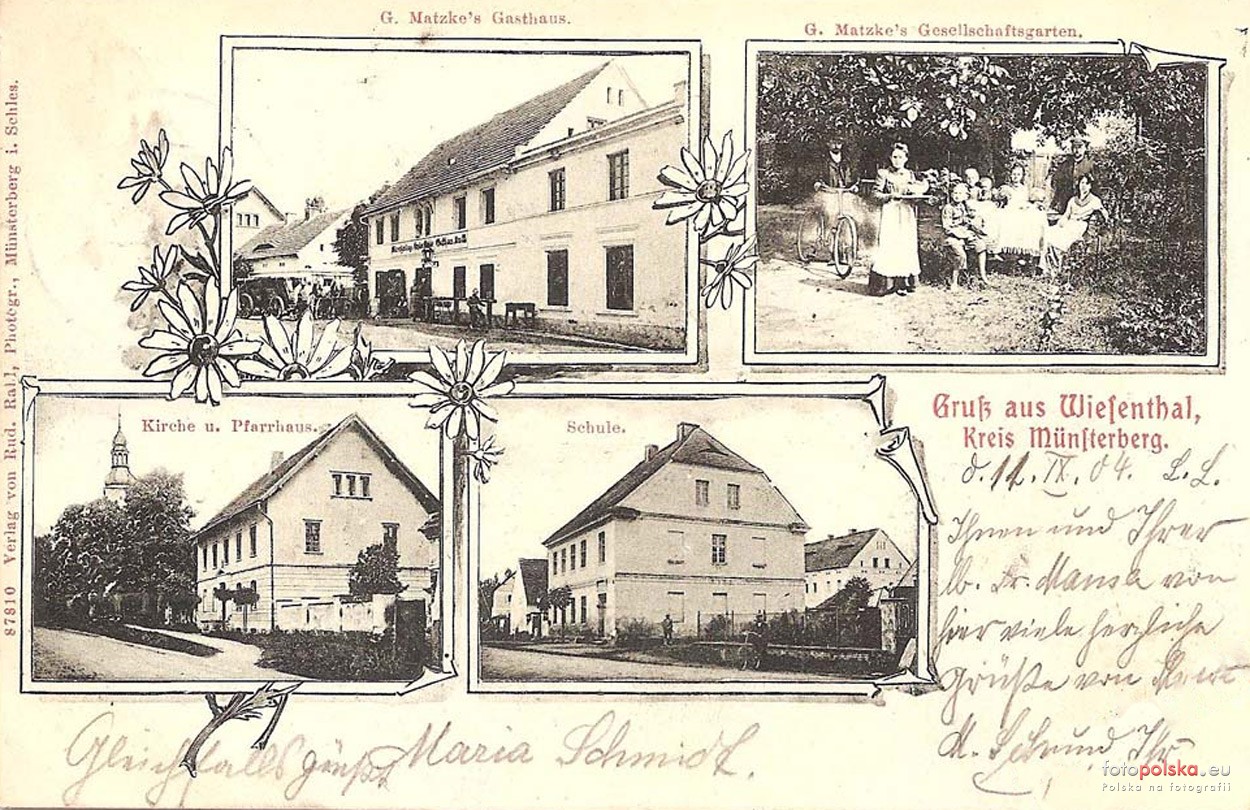 G. Matzke's Gasthaus.
G. Matzke's Gesellschaftsgarten.
87810 Verlag von Rud. Rall, Photogr., Münsterberg i. Schles.
Kirche u. Pfarrhaus.
Schule.
Gruß aus Wiesenthal,
Kreis Münsterberg.
d. 11. IX. 04. L. L.
Ihnen und Ihrer
lb. Fr. Mama von
hier viele herzliche
Grüße von
M. und Ihr
Gleichfalls grüßt Maria Schmidt.
fotopolska.eu
Polska na fotografii